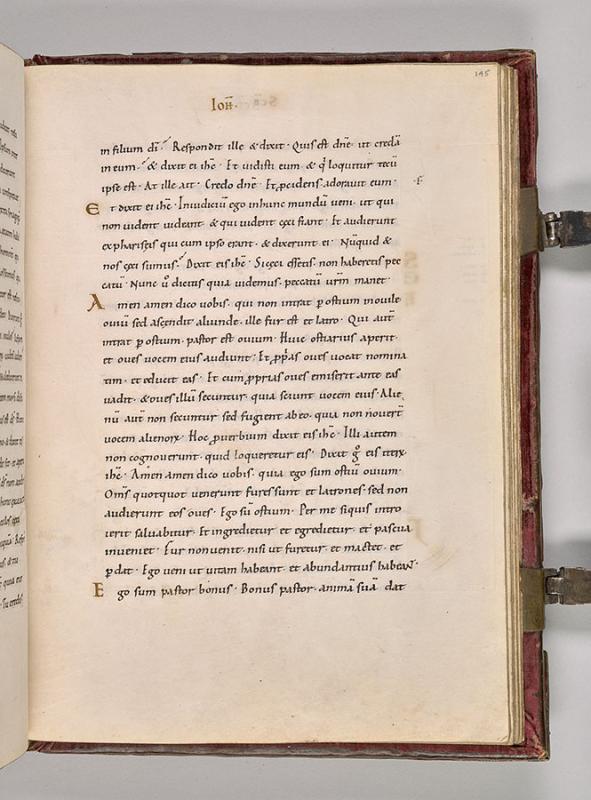 145
Ioħ.
in filium dī. Respondit ille & dixit. Quis est dn̄e ut credā
in eum. & dixit ei ihc̄. Et uidisti eum & q̄ loquitur tecū
ipse est. At ille ait. Credo dn̄e. Et ꝓcidens adorauit eum.
Et dixit ei ihc̄. In iudiciū ego in hunc mundū ueni. ut qui
non uident uideant & qui uident cęci fiant. Et audierunt
ex pharisęis qui cum ipso erant. & dixerunt ei. Nūquid &
nos cęci sumus. Dixit eis ihc̄. Si cęci essetis. non haberetis pec
catū. Nunc ů dicitis quia uidemus. peccatū ur̄m manet.
Amen amen dico uobis. qui non intrat ꝑ ostium in ouile
ouiū sed ascendit aliunde. ille fur est et latro. Qui aūt
intrat ꝑ ostium. pastor est ouium. Huic ostiarius aperit.
et oues uocem eius audiunt. Et ꝓp̄as oues uocat nomina
tim. et educit eas. Et cum ꝓprias oues emiserit. ante eas
uadit. & oues illū secuntur. quia sciunt uocem eius. Alie
nū aūt non secuntur sed fugient ab eo. quia non nouer̄t
uocem alienoꝝ. Hoc ꝓuerbium dixit eis ihc̄. Illi autem
non cognouerunt. quid loqueretur eis. Dixit ḡ eis iterꝝ
ihc̄. Amen amen dico uobis. quia ego sum ostiū ouium.
Om̄s quotquot uenerunt fures sunt et latrones. sed non
audierunt eos oues. Ego sū ostium. Per me siquis intro
ierit saluabitur. Et ingredietur et egredietur. et pascua
inueniet. Fur non uenit. nisi ut furetur et mactet. et
ꝑdat. Ego ueni ut uitam habeant. et abundantius habeant.
Ego sum pastor bonus. Bonus pastor. animā suā dat